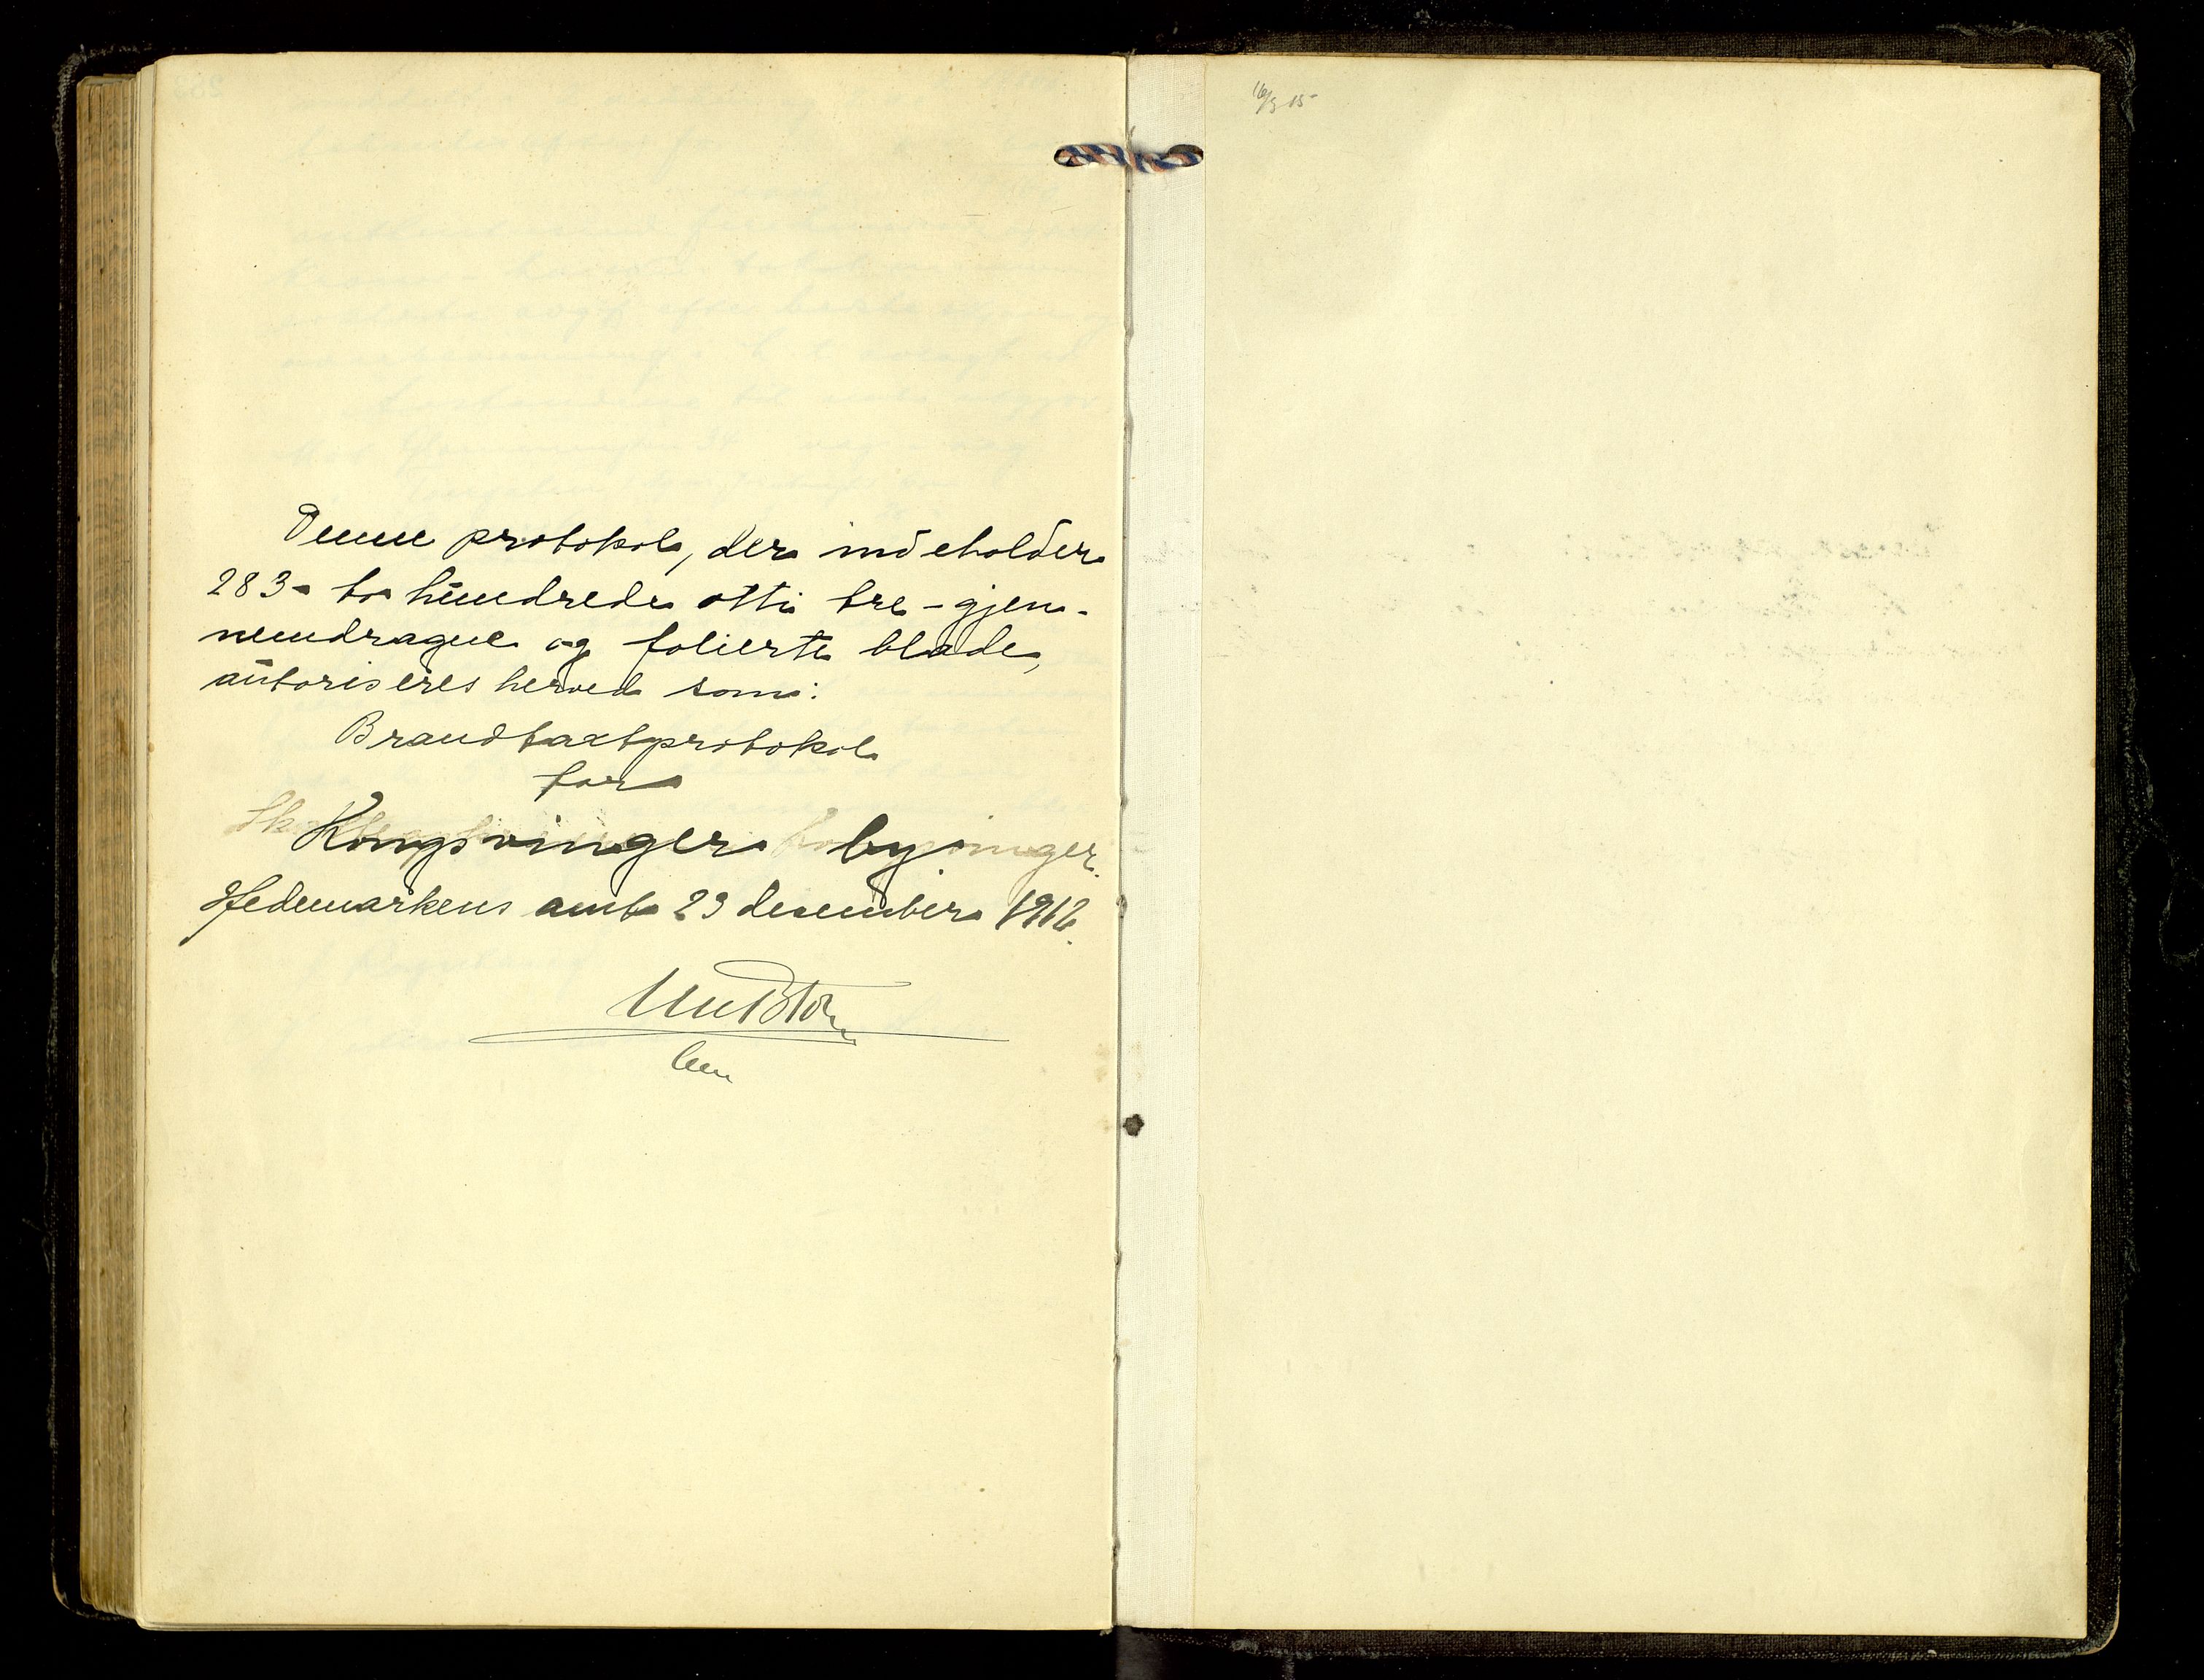 Denne protokol, der indeholder
283 - to hundrede otti tre - gjen-
nemdragne og folierte blade,
autoriseres herved som:
Brandtaxtprotokol
for
Kongsvinger by
Hedemarkens amt 23 desember 1912.
16/3 15